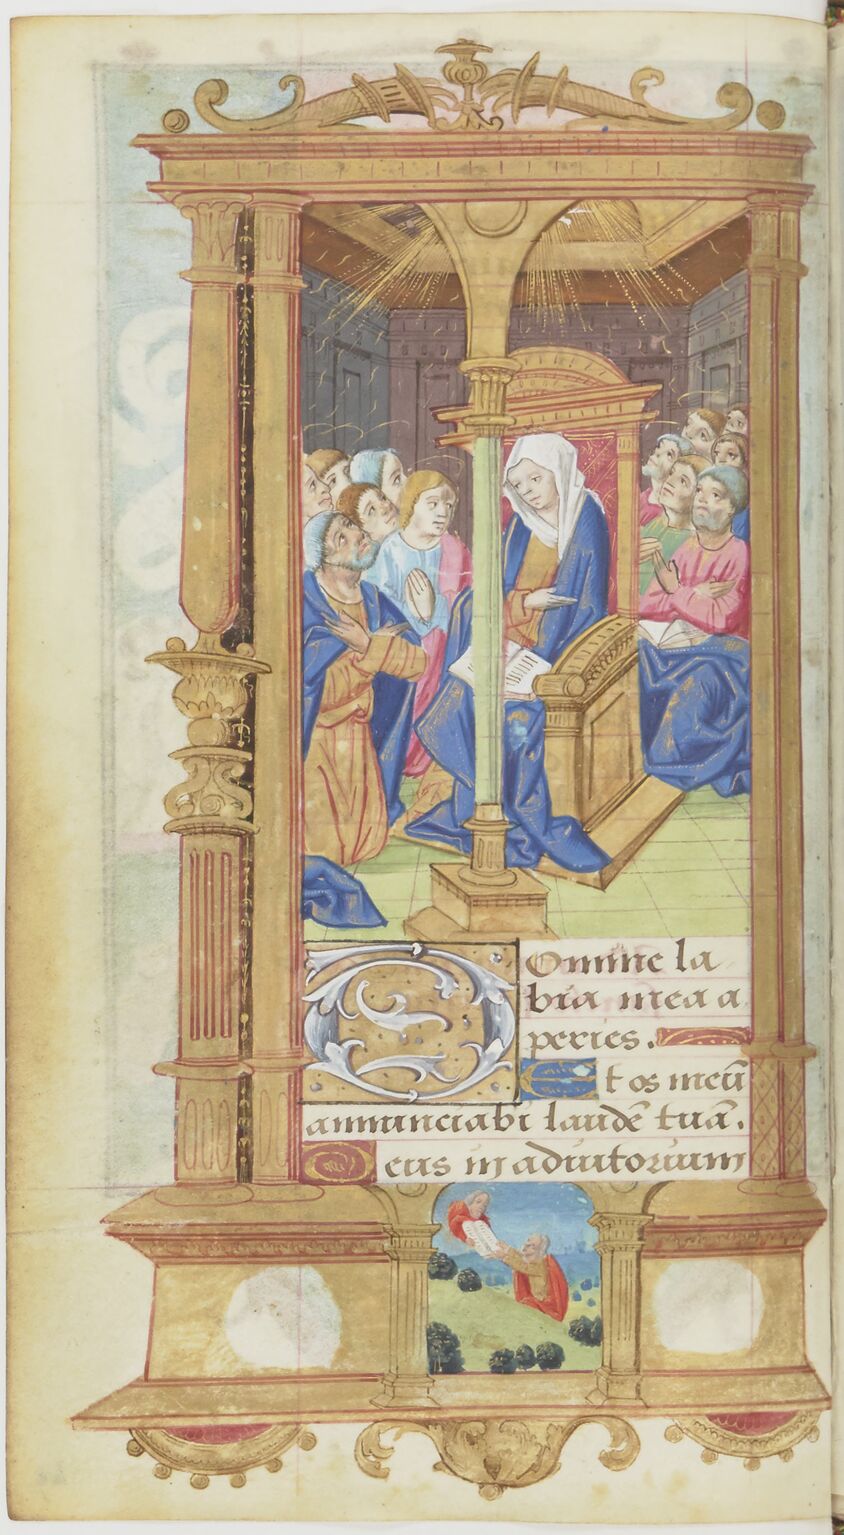 Domine la
bia mea a
peries.
Et os meū
annunciabi laudē tuā.
Deus in adiutorium